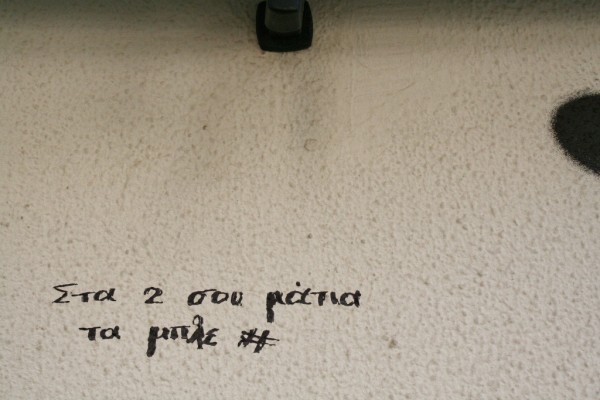 Στα 2 σου μάτια
τα μπλε #